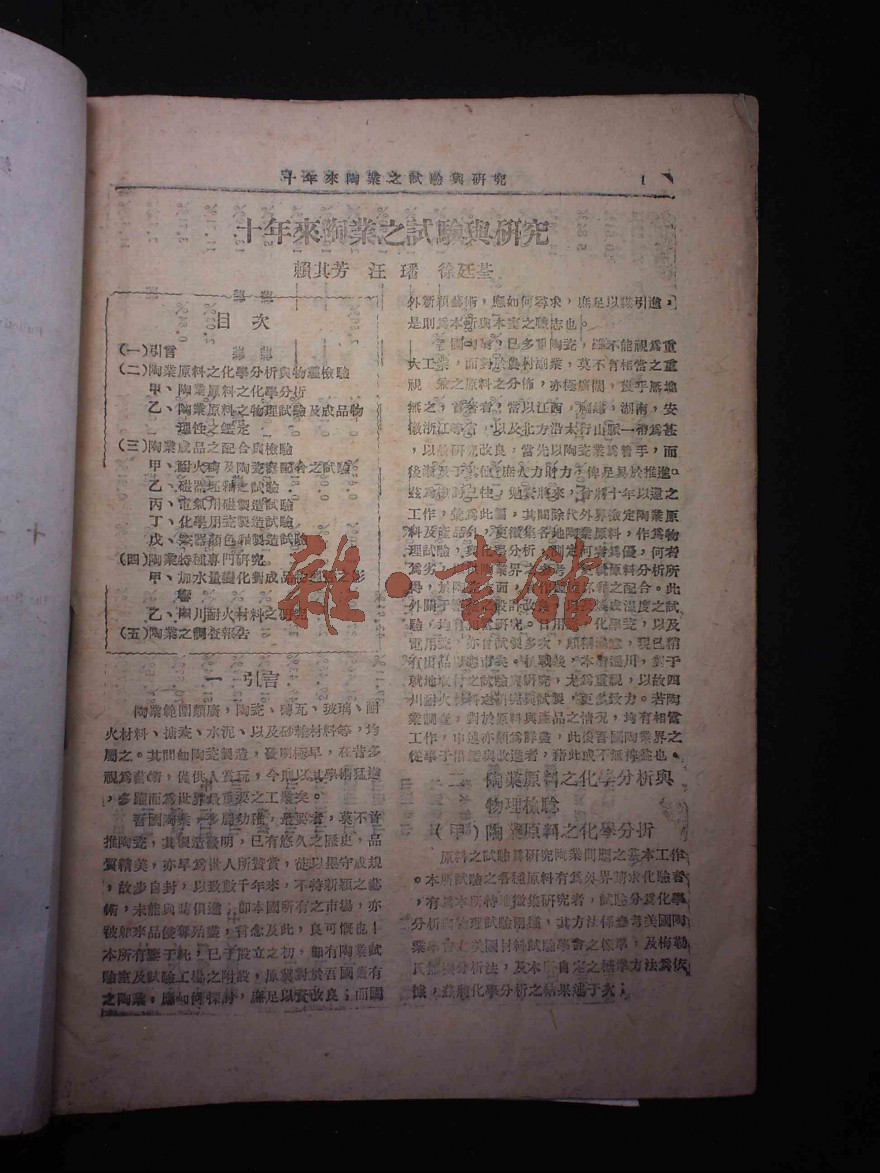 十年來陶業之試驗與硏究 1
十年來陶業之試驗與硏究
賴其芳 汪璠 徐廷荃
目次
(一)引言
(二)陶業原料之化學分析與物理檢驗
甲、陶業原料之化學分析
乙、陶業原料之物理試驗及成品物
理性之鑑定
(三)陶業成品之配合與檢驗
甲、耐火磚及陶瓷配合之試驗
乙、磁器坯釉之試驗
丙、電氣用磁製造試驗
丁、化學用瓷製造試驗
戊、瓷器顏色釉製造試驗
(四)陶業特種專門研究
甲、加水量變化對成品物理性之影
響
乙、四川耐火材料之研究
(五)陶業之調查報告
一 引言
陶業範圍頗廣,陶瓷、磚瓦、玻璃、耐
火材料、搪瓷、水泥、以及砂輪材料等,均
屬之。其間如陶瓷製造,發明極早,在昔多
視爲藝術,僅供人賞玩,今則以其學術猛進
,多躍而爲世界最重要之工業矣。
吾國陶業,多屬幼稚,最要者,莫不首
推陶瓷,其製造發明,已有悠久之歷史,品
質精美,亦早爲世人所贊賞,徒以墨守成規
,故步自封,以致數千年來,不特新穎之藝
術,未能與時俱進,卽本國所有之市場,亦
被舶來品侵奪殆盡,言念及此,良可慨也!
本所有鑒于此,已于設立之初,卽有陶業試
驗室及試驗工場之附設,原冀對於吾國舊有
之陶業,應如何探討,庶足以資改良;而國
外新穎藝術,應如何尋求,庶足以資引進,
是則爲本所與本室之職志也。
吾國各省,已多重陶瓷,雖不能視爲重
大工業,而對於農村副業,莫不有相當之重
視 業之原料之分佈,亦極廣闊,幾乎無地
無之,著者,當以江西,福建,湖南,安
徽浙江等省,以及北方沿太行山脈一帶爲甚
,以故研究改良,當先以陶瓷業爲着手,而
後漸及于其他,庶人力財力,俾足易於推進。
茲爲檢討已往,勉勵將來,將十年以還之
工作,彙爲此篇,其間除代外界檢定陶業原
料及產品外,更徵集各地陶業原料,作爲物
理試驗,與化學分析,測定何者爲優,何者
爲劣,原料分析所
之配合。此
溫度之試
驗,均有研究。日用化學瓷,以及
電用瓷,亦嘗試製多次,頗稱滿意,現已稍
有出品。抗戰後,本所遷川,對于
就地取材之試驗與研究,尤爲重視,以故四
川耐火材料之研究與試製,更多致力。若陶
業調查,對於原料與產品之情況,均有相當
工作,申述亦頗爲詳盡,此後吾國陶業界之
從事于 改進者,藉此或不無裨益也。
二 陶業原料之化學分析與
物理檢驗
(甲)陶業原料之化學分析
原料之試驗爲研究陶業問題之基本工作
。本所試驗之各種原料有爲外界請求化驗者
,有爲本所特地徵集研究者,試驗分爲化學
分析與物理試驗兩種,其方法係參考美國陶
業學會及美國材料試驗學會之標準,及梅勒
氏 分析法,及本所自定之標準方法爲依
據,茲將化學分析之結果述于次;
雜·書館